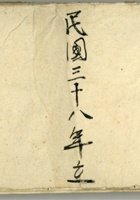 民國三十八年立